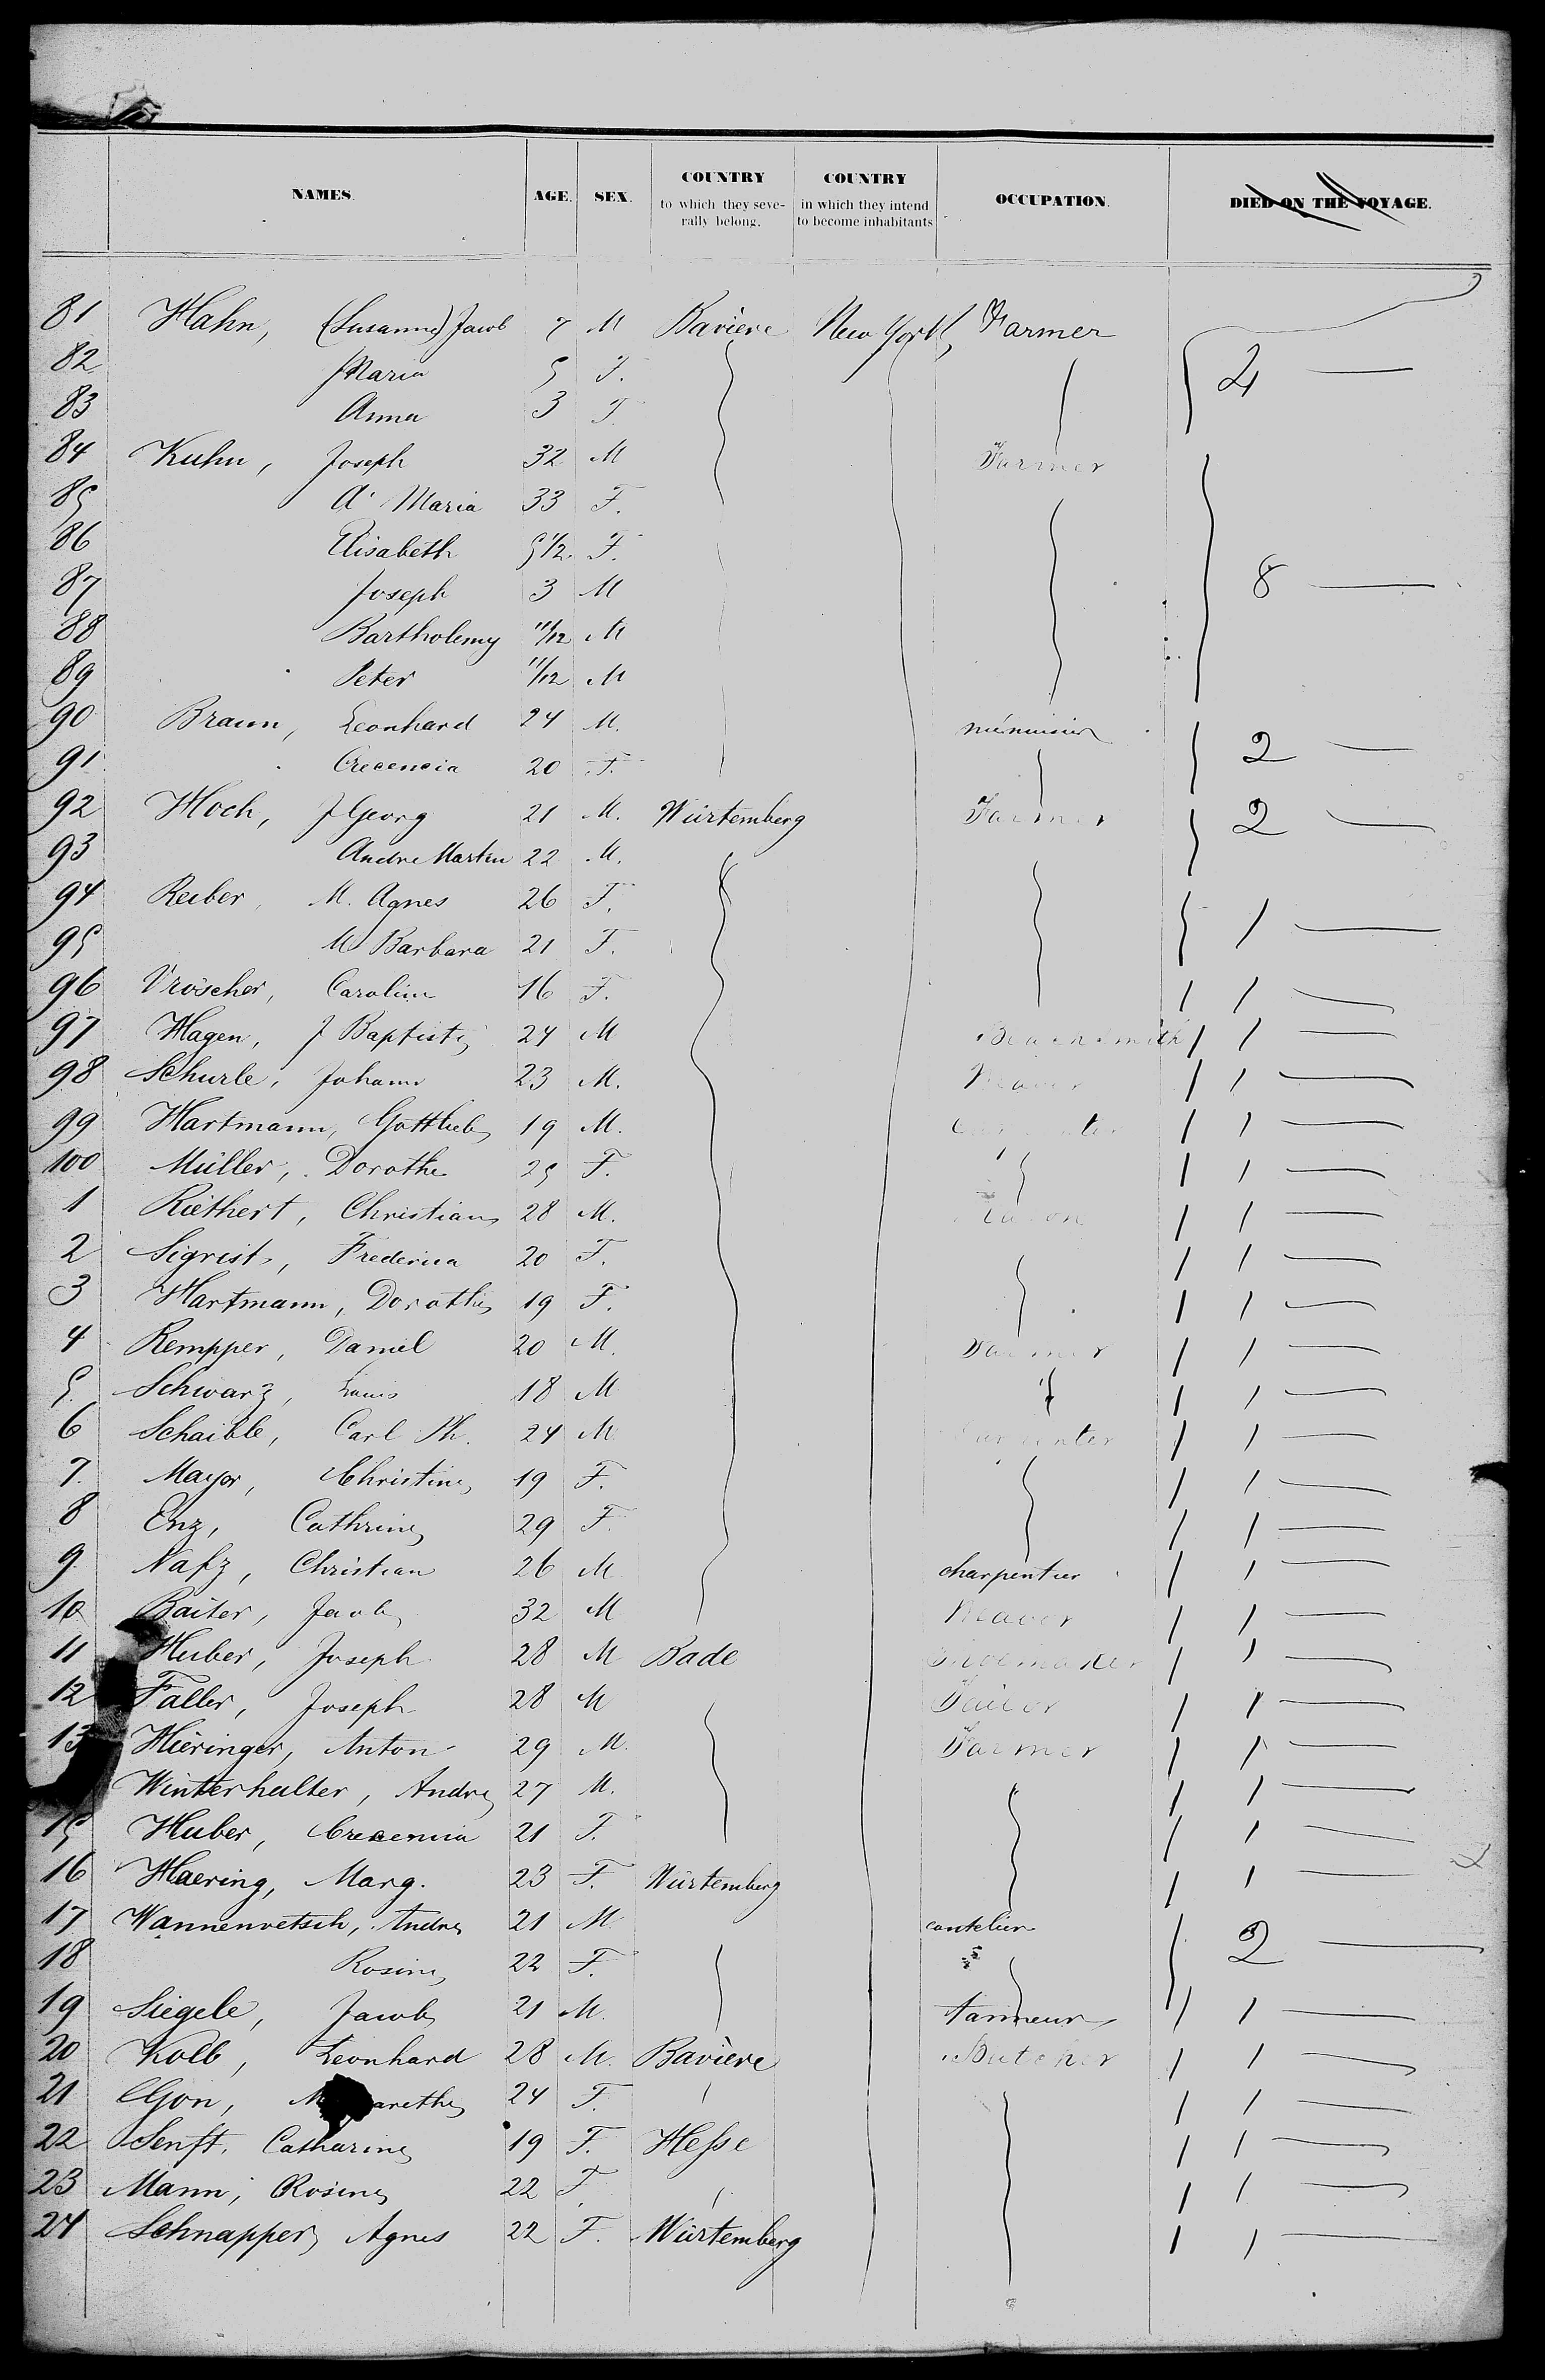 NAMES. AGE. SEX. COUNTRY to which they severally belong. COUNTRY in which they intend to become inhabitants OCCUPATION. DIED ON THE VOYAGE.
81 Hahn, (Susanne) Jacob 7 M Bavière New York Farmer
82 Maria 5 F. 4
83 Anna 3 F
84 Kuhn, Joseph 32 M Farmer
85 A. Maria 33 F.
86 Elisabeth 5 1/2 F.
87 Joseph 3 M 8
88 Bartholemy 11/12 M
89 Peter 11/12 M
90 Braun, Leonhard 24 M. menuisier 2
91 Crecencia 20 F.
92 Hoch, J Georg 21 M. Würtemberg Farmer 2
93 Andre Martin 22 M.
94 Reiber, M. Agnes 26 F. 1
95 M Barbara 21 F.
96 Vröscher, Caroline 16 F. 1 1
97 Hagen, J Baptiste 24 M 1 1
98 Schurle, Johann 23 M. Weaver 1 1
99 Hartmann, Gottlieb 19 M. 1 1
100 Müller, Dorothe 25 F. 1 1
1 Riethert, Christian 28 M. 1 1
2 Sigrist, Frederica 20 F. 1 1
3 Hartmann, Dorothe 19 F. 1 1
4 Rempper, Daniel 20 M. Farmer 1 1
5 Schwarz, Louis 18 M 1 1
6 Schaible, Carl 24 M Carpenter 1 1
7. Mayer, Christine 19 F. 1 1
8 Enz, Cathrine 29 F. 1 1
9 Nafz, Christian 26 M charpentier 1 1
10 Baiter, Jacob 32 M Weaver 1 1
11 Huber, Joseph 28 M Bade Shoemaker 1 1
12 Faller, Joseph 28 M Tailor 1 1
13 Hieringer, Anton 29 M. Farmer 1 1
Winterhalter, Andre 27 M. 1 1
15 Huber, Crecencia 21 F. 1 1
16 Haering, Marg. 23 F. Würtemberg 1 1
17 Wannenvetsch, Andre 21 M 2
18 Rosine 22 F.
19 Siegele, Jacob 21 M. tanneur 1 1
20 Kolb, Leonhard 28 M. Bavière Butcher 1 1
21 24 F. 1 1
22 Senft, Catharine 19 F. Hesse 1 1
23 Mann, Rosine 22 F 1 1
24 Schnapper, Agnes 22 F. Würtemberg 1 1